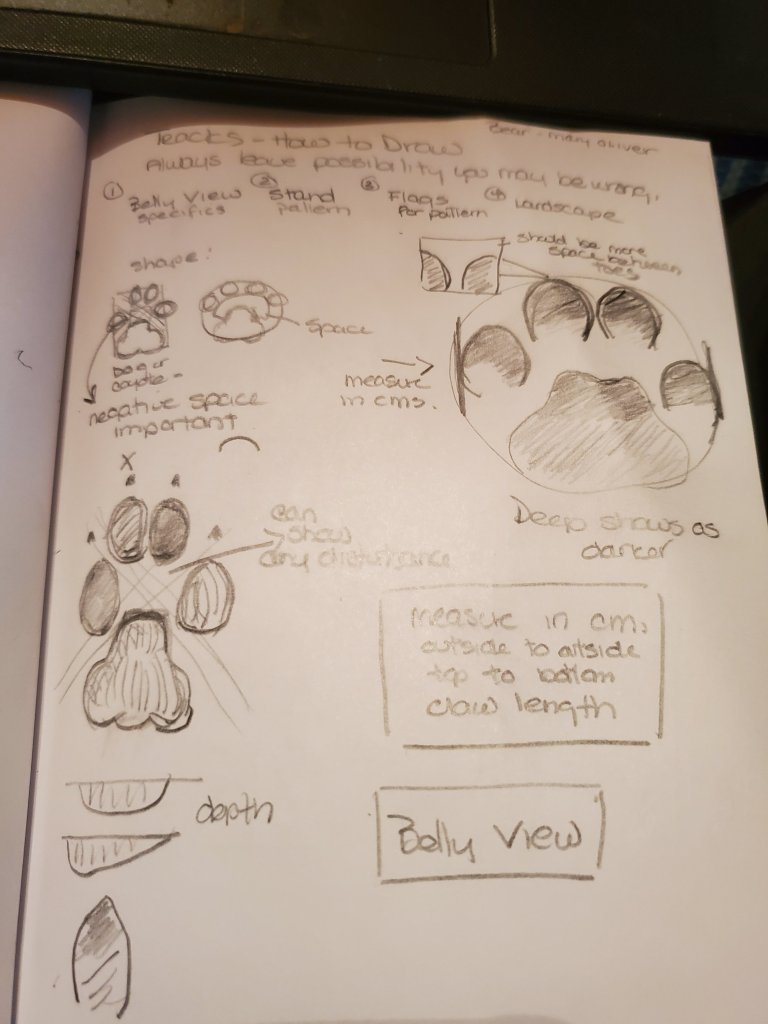 Tracks - How to Draw
Bear - Mary Oliver
Always leave possibility you may be wrong.
① Belly View
specifics
② Stand
pattern
③ Flags
for pattern
④ Landscape
shape:
should be more
space between
toes
space
Dog or
coyote -
negative space
important
measure
in cms.
X
can
show
any disturbance
Deep shows as
darker
measure in cm,
outside to outside
top to bottom
claw length
depth
Belly View